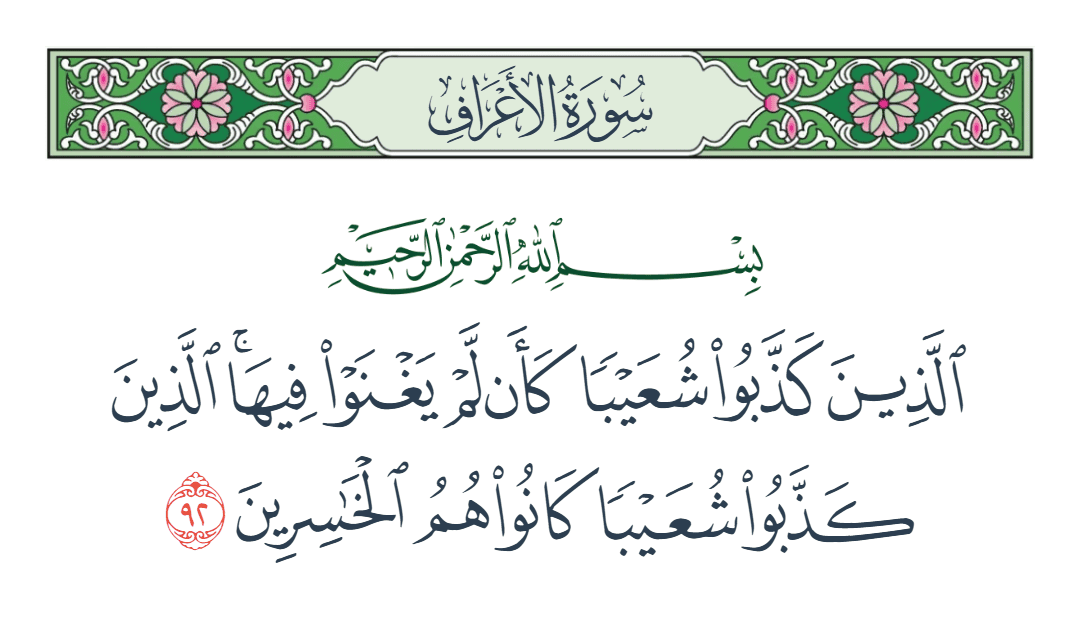 سُورَةُ الأَعْرَافِ
بِسْمِ ٱللَّهِ ٱلرَّحْمَٰنِ ٱلرَّحِيمِ
ٱلَّذِينَ كَذَّبُوا۟ شُعَيْبًا كَأَن لَّمْ يَغْنَوْا۟ فِيهَا ۚ ٱلَّذِينَ
كَذَّبُوا۟ شُعَيْبًا كَانُوا۟ هُمُ ٱلْخَٰسِرِينَ ٩٢